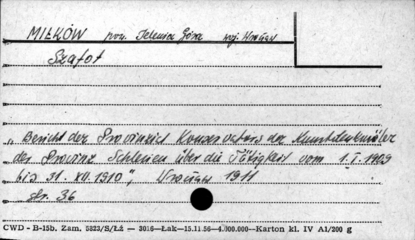 MIŁKÓW pow. Jelenia Góra woj. Wrocław
Szafot
„Bericht der Provinzial Konservators der Kunstdenkmäler
der Provinz Schlesien über die Tätigkeit vom 1.I.1909
bis 31. XII. 1910", Wrocław 1911
str. 36
CWD - B-15b. Zam. 5823/S/Łż — 3016—Łak—15.11.56—4.000.000—Karton kl. IV A1/200 g